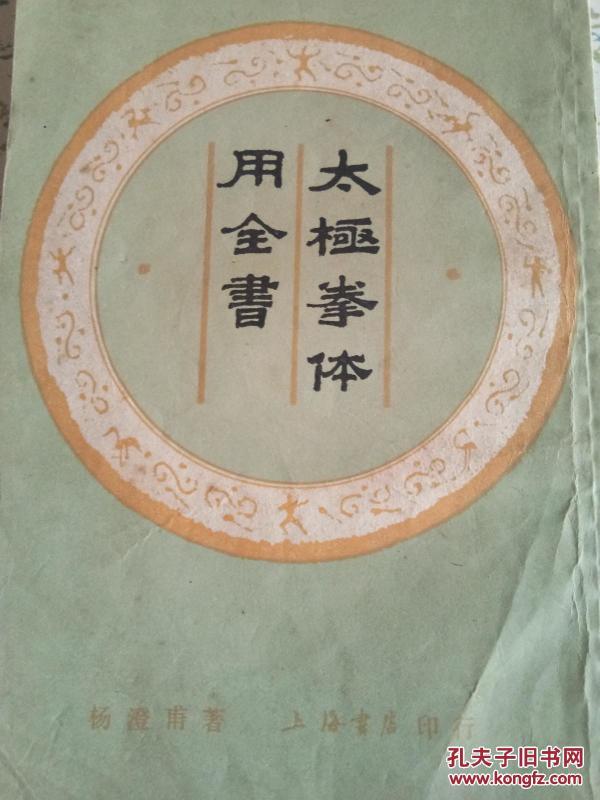 太極拳体
用全書
杨澄甫著 上海書店印行
孔夫子旧书网
www.kongfz.com